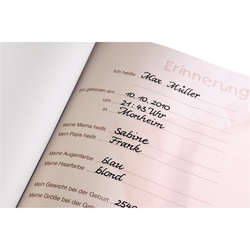 Erinnerung
Ich heiße Max Müller
Bin geboren am 10.10.2010
um 21:43 Uhr
in Monheim
Meine Mama heißt Sabine
Mein Papa heißt Frank
Meine Augenfarbe blau
Meine Haarfarbe blond
Mein Gewicht bei der Geburt 2540
Meine Größe bei der Geburt